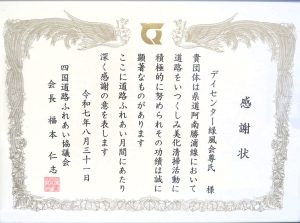 感謝状
デイセンター緑風会尊氏 様
貴団体は県道阿南勝浦線において
道路をいつくしみ美化清掃活動に
積極的に努められその功績は誠に
顕著なものがあります
ここに道路ふれあい月間にあたり
深く感謝の意を表します
令和七年八月三十一日
四国道路ふれあい協議会
会長 橋本 仁志